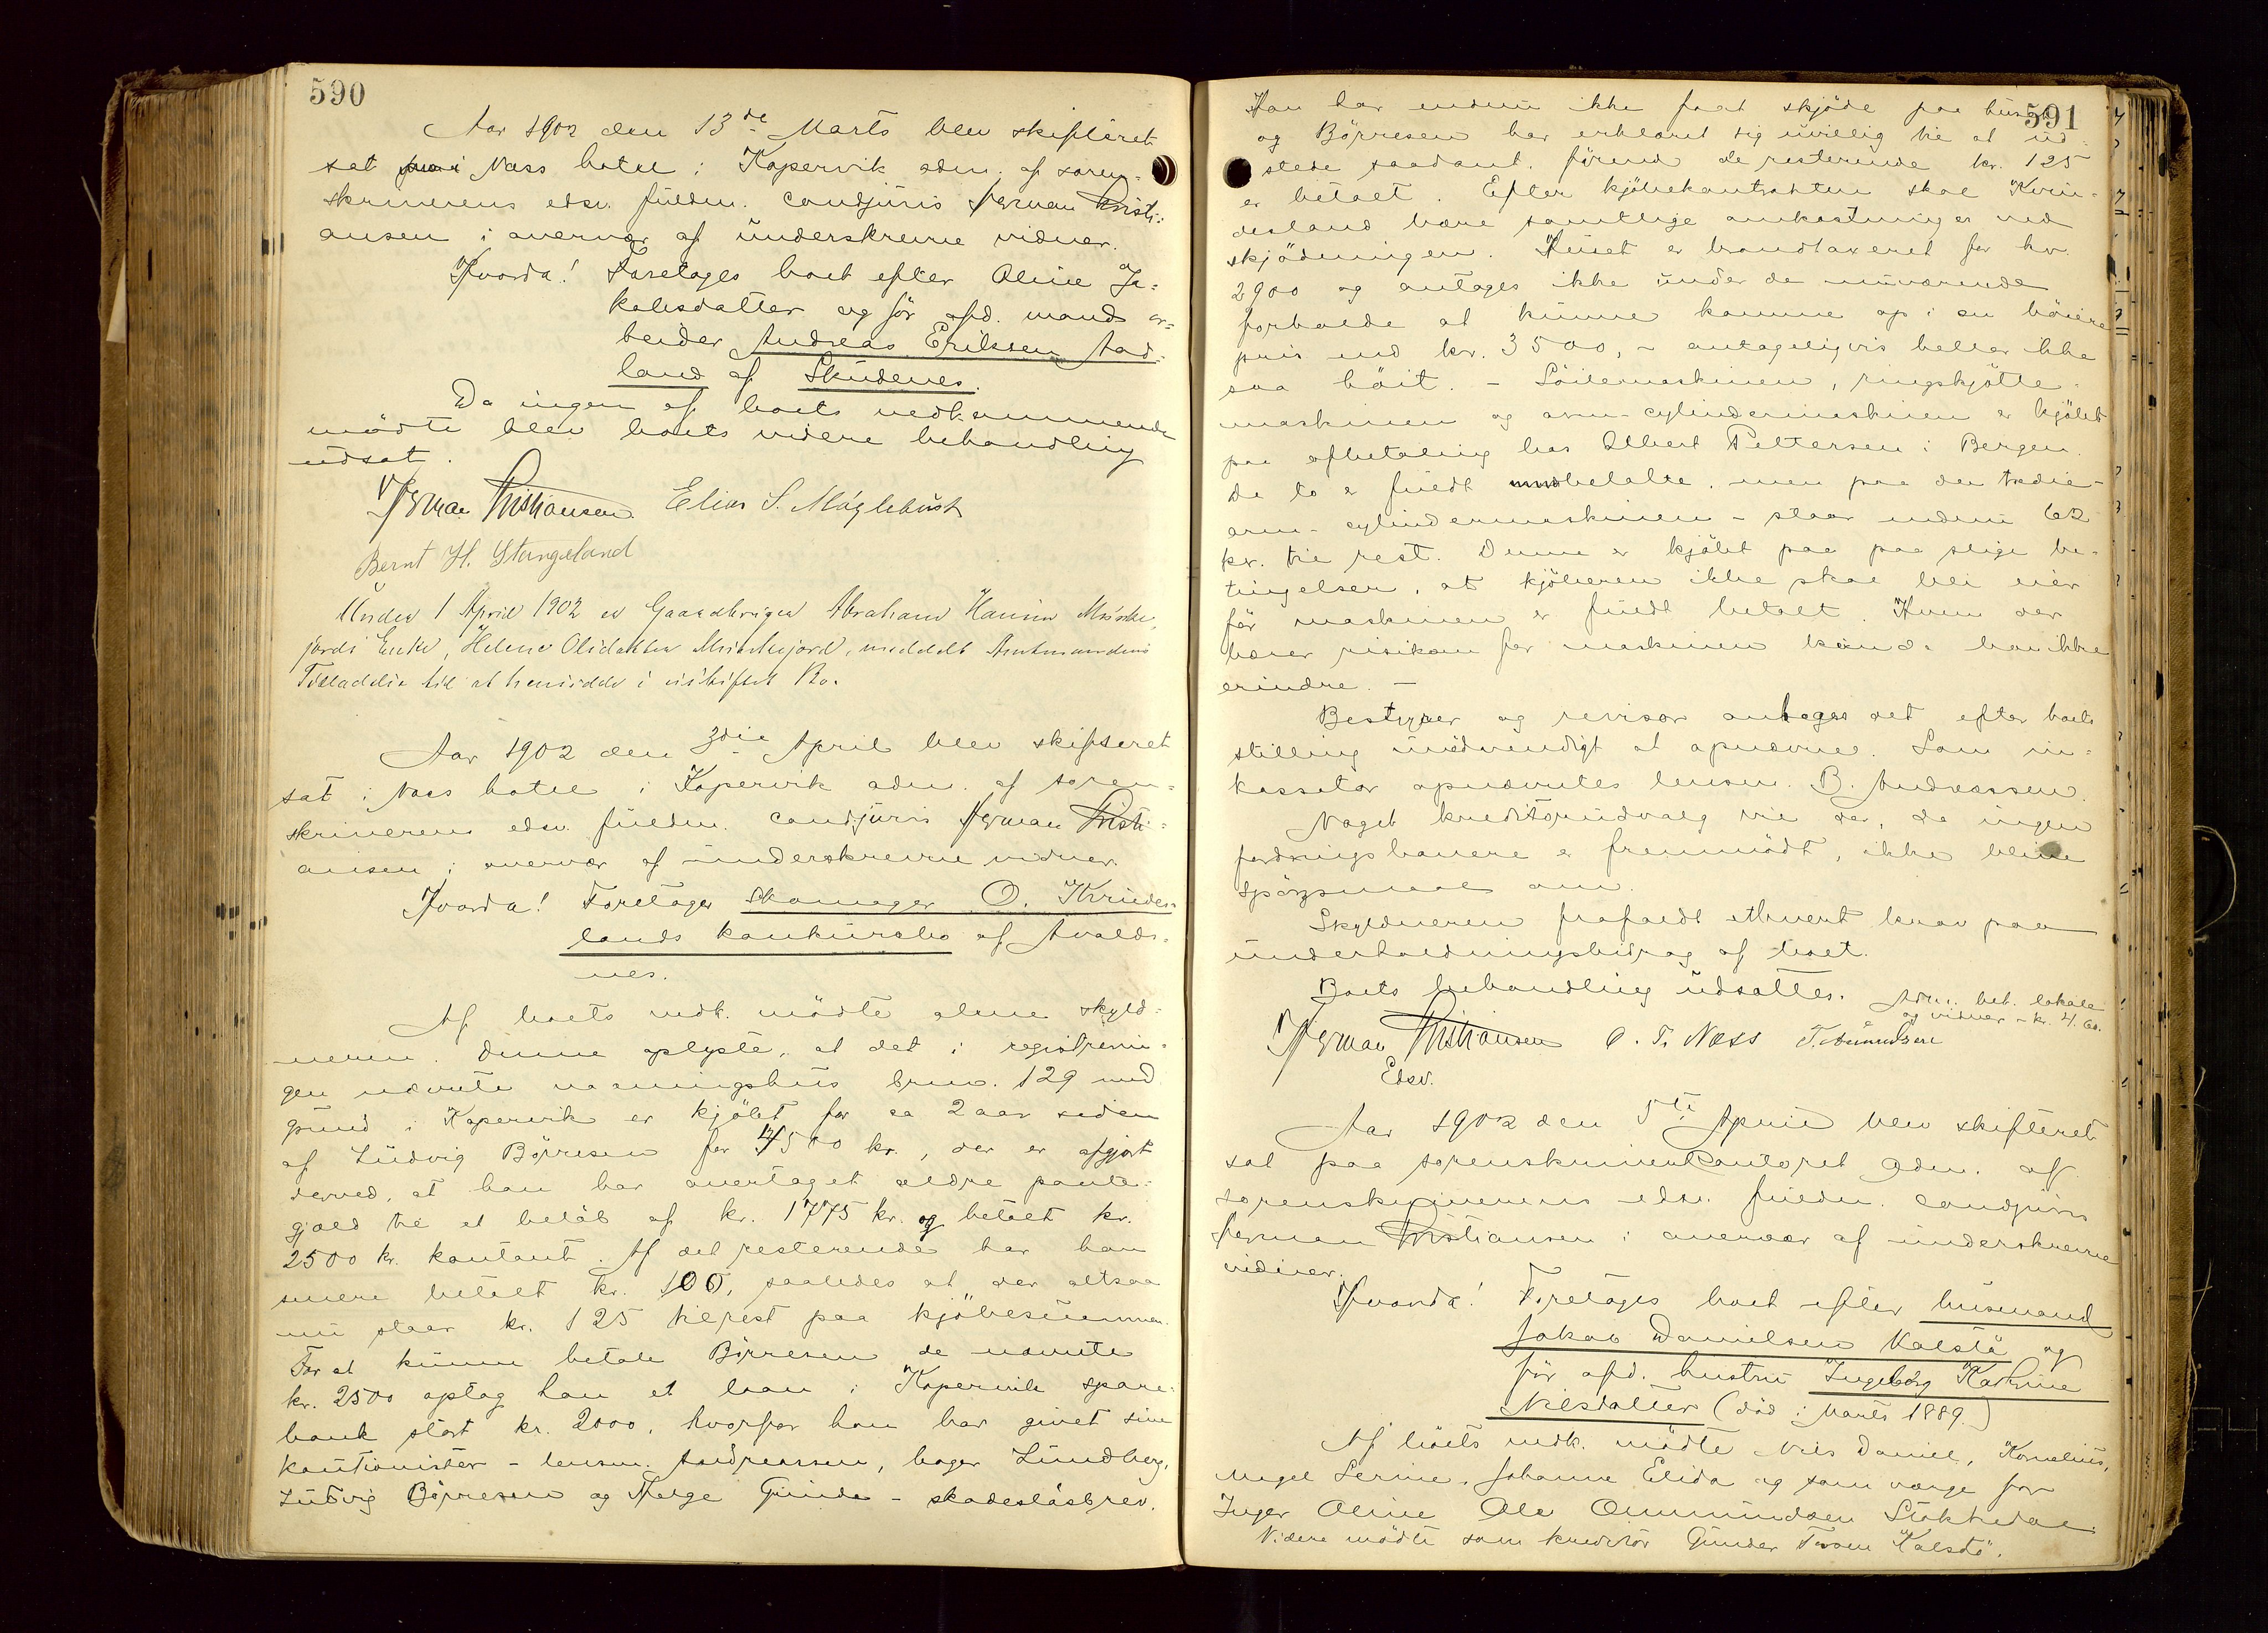 590
Aar 1902 den 13de Marts blev skifteret
sat i Næss hotel i Kopervik adm. af soren-
skriverens edsv. fuldm. cand juris Herman Kristi-
ansen i overvær af underskrevne vidner.
Hvorda! Foretages boet efter Oline Ja-
kobsdatter og før afd. mand ar-
beider Andreas Eriksen Aad-
land af Skudenes.
Da ingen af boets vedkommende
mødte blev boets videre behandling
udsat.
Herman Kristiansen Elias S. Møglebust
Bernt H. Stangeland
Under 1 April 1902 er Gaardbruger Abraham Hansen
Enke, Helene Olsdatter meddelt Amtmandens
Tilladelse til at hensidde i uskiftet Bo.
Aar 1902 den 3die April blev skifteret
sat i Næss hotel i Kopervik adm. af soren-
skriverens edsv. fuldm. cand juris Herman Kristi-
ansen i overvær af underskrevne vidner.
Hvorda! Foretages skomager O. Kvindes-
lands konkursbo af Avalds-
nes.
Af boets vedk. mødte alene skyld-
neren. Denne oplyste, at det i registrerin-
gen nævnte vaaningshus brno. 129 med
grund i Kopervik er kjøbt for ca 2 aar siden
af Ludvig Børresen for 4500 kr., der er afgjort
derved, at han har overtaget ældre pante-
gjæld til et beløb af kr. 1775 kr. og betalt kr.
2500 kr. kontant. Af det resterende har han
senere betalt kr. 100, saaledes at der altsaa
nu staar kr. 125 til rest paa kjøbesummen.
For at kunne betale Børresen de nævnte
kr. 2500 optog han et laan i Kopervik spare-
bank stort kr. 2000, hvorfor han har givet sine
kautionister - lensm. Andreassen, bager Lundberg,
Ludvig Børresen og Helge Gunde - skadesløsbrev.
591
Han har endnu ikke faat skjøde paa huset
og Børresen har erklæret sig uvillig til at ud-
stede saadant, førend de resterende kr. 125
er betalt. Efter kjøbekontrakten skal Kvin-
desland bære samtlige omkostninger ved
skjødningen. Huset er brandtaxeret for kr.
2900 og antages ikke under de nuværende
forholde at kunne komme op i en høiere
pris end kr. 3500, - antageligvis heller ikke
saa høit. - Söilemaskinen, ringskjøtte-
maskinen og arm-cylindermaskinen er kjøbt
paa afbetaling hos Albert Pettersen i Bergen.
De to er fuldt betalte, men paa den tredie -
arm-cylindermaskinen - staar endnu 62
kr. til rest. Denne er kjøbt paa paa slige be-
tingelser, at kjøberen ikke skal bli eier
før maskinen er fuldt betalt. Hvem der
bærer risikoen for maskinen kunde han ikke
erindre. -
Bestyrer og revisor antages det efter boets
stilling unødvendigt at opnævne. Som in-
kassator opnævntes lensm. B. Andreassen.
Noget kreditorudvalg vil der, da ingen
fordringshavere er fremmødt, ikke blive
spørgsmaal om.
Skyldneren frafaldt ethvert krav paa
underholdningsbidrag af boet.
Boets behandling udsattes. Adm. bet. lokale
og vidner - kr. 4.60.
Herman Kristiansen O. T. Næss T. Amundsen
Edsv.
Aar 1902 den 5te April blev skifteret
sat paa sorenskriverkontoret adm. af
sorenskriverens edsv. fuldm. cand juris
Herman Kristiansen i overvær af underskrevne
vidner.
Hvorda! Foretages boet efter husmand
Jakob Danielsen Kalstø og
før afd. hustru Ingeborg Kathrine
Nilsdatter (død i Marts 1889.)
Af boets vedk. mødte Nils Daniel, Kornelius,
Serine, Johanne Elida og som værge for
Inger Oline Ole Ommundsen Stokkedal.
Videre mødte som kreditor Gunder Kalstø.